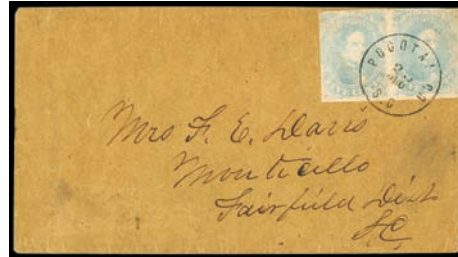 POCOTA
S.C.
Mrs F. E. Davis
Monticello
Fairfield Dist
SC